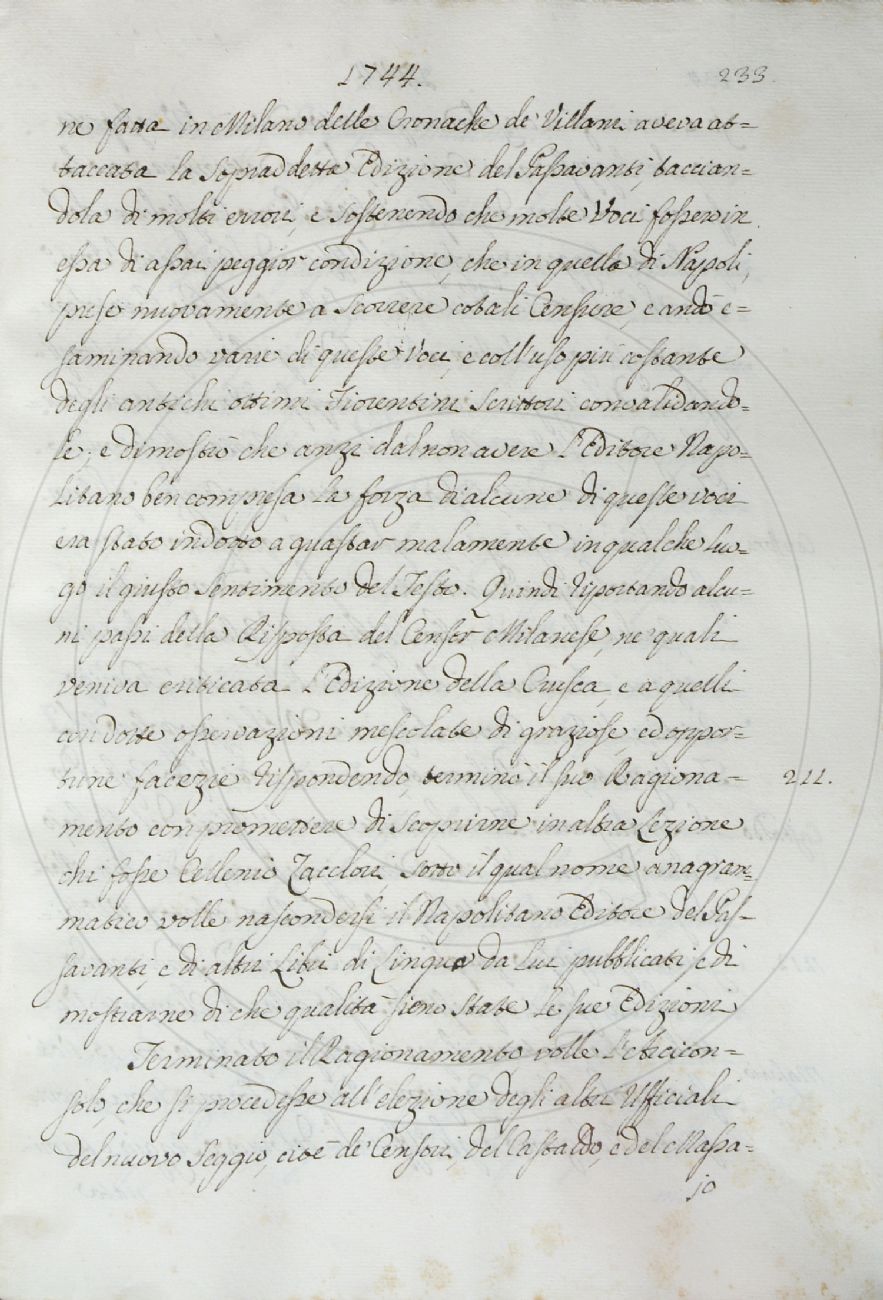 1744.
233.
ne fatta in Milano delle Cronache de' Villani aveva at=
taccata la Sopraddetta Edizione del Passavanti, taccian=
dola di molti errori, e sostenendo che molte Voci fossero in
essa di assai peggior condizione, che in quella di Napoli,
prese nuovamente a Scorrere cotali Censure, e andò e=
saminando varie di queste Voci, e coll'uso più costante
degli antichi ottimi Fiorentini Scrittori convalidando=
le; e dimostrò che anzi dal non avere l'Editore Napo=
litano ben compresa la forza di alcune di queste voci
era stato indotto a guastar malamente in qualche luo=
go il giusto Sentimento del Testo. Quindi riportando alcu=
ni passi della Risposta del Censor Milanese, ne' quali
veniva criticata l'Edizione della Crusca, e a quelli
con dotte osservazioni mescolate di graziose, ed oppor=
tune facezie rispondendo, terminò il suo Ragiona=
211.
mento con promettere di Scoprirne in altra Lezione
chi fosse Cellenio Zacclori, sotto il qual nome anagram=
matico volle nascondersi il Napolitano Editore del Pas=
savanti, e di altri Libri di Lingua da lui pubblicati, e di
mostrarne di che qualità sieno state le sue Edizioni
Terminato il Ragionamento volle l'Arcicon=
solo, che si procedesse all'elezione degli altri Ufficiali
del nuovo Seggio, cioè de' Censori, del Castaldo, e del Massa=
jo